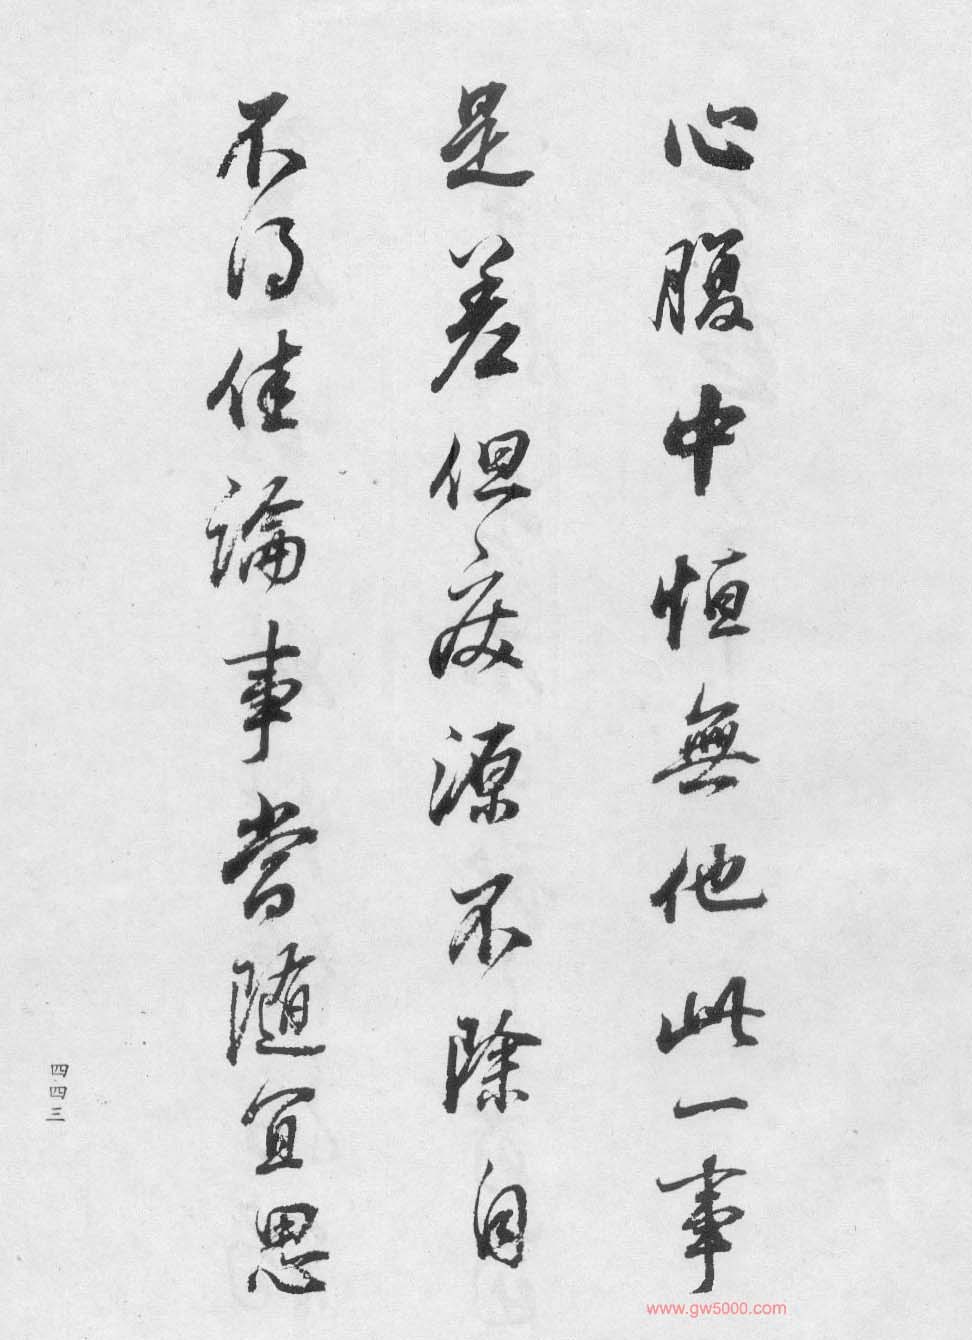 心腹中恒無他此一事
是差但疾源不除自
不得佳論事當隨宜思
四四三
www.gw5000.com